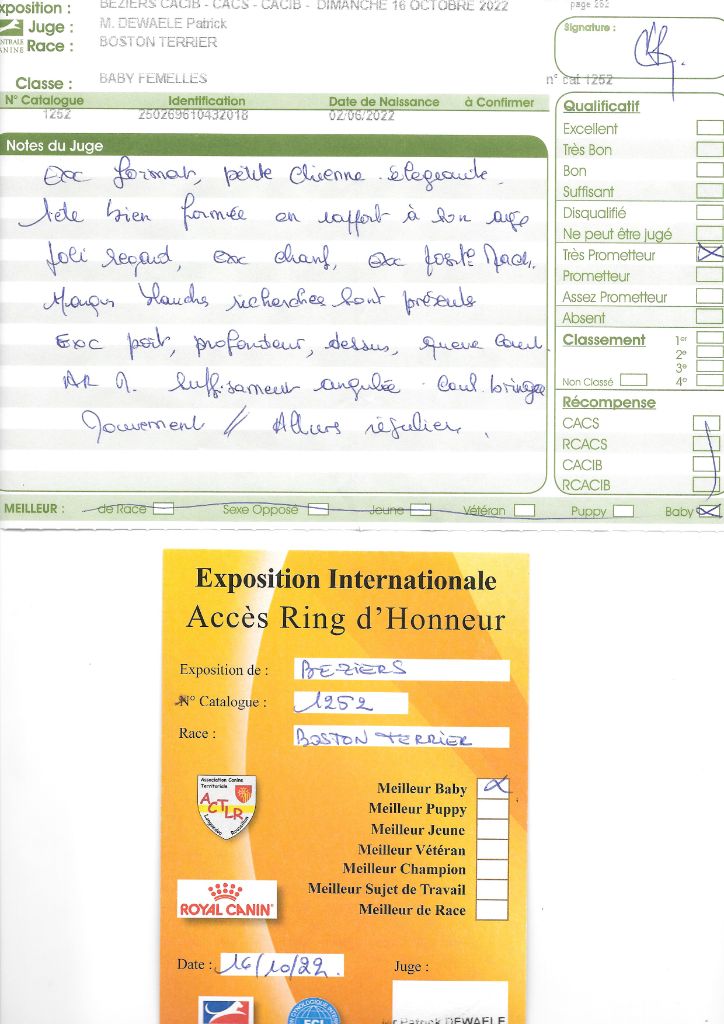 xposition : BEZIERS CACIB - CACS - CACIB - DIMANCHE 16 OCTOBRE 2022
page 252
Juge : M. DEWAELE Patrick
Signature :
NTRALE
ANINE Race : BOSTON TERRIER
Classe : BABY FEMELLES
n° cat 1252
N° Catalogue Identification Date de Naissance à Confirmer
1252 250269610432018 02/06/2022
Notes du Juge
Exc format, petite chienne élégante.
Tête bien formée en rapport à son age
Joli regard, exc chanf, exc posit° Mach.
Marques blanches recherchées sont présents
Exc port, profondeur, dessus, queue
AR suffisament angulée. Coul. bringée
Mouvement // Allures régulier.
Qualificatif
Excellent
Très Bon
Bon
Suffisant
Disqualifié
Ne peut être jugé
Très Prometteur
Prometteur
Assez Prometteur
Absent
Classement 1er
2e
3e
Non Classé 4e
Récompense
CACS
RCACS
CACIB
RCACIB
MEILLEUR : de Race Sexe Opposé Jeune Vétéran Puppy Baby
Exposition Internationale
Accès Ring d'Honneur
Exposition de : BEZIERS
N° Catalogue : 1252
Race : BOSTON TERRIER
Association Canine
Territoriale
ACTLR
Languedoc Roussillon
Meilleur Baby
Meilleur Puppy
Meilleur Jeune
Meilleur Vétéran
Meilleur Champion
Meilleur Sujet de Travail
Meilleur de Race
ROYAL CANIN
Date : 16/10/22.
Juge :
Mr Patrick DEWAELE
FCI